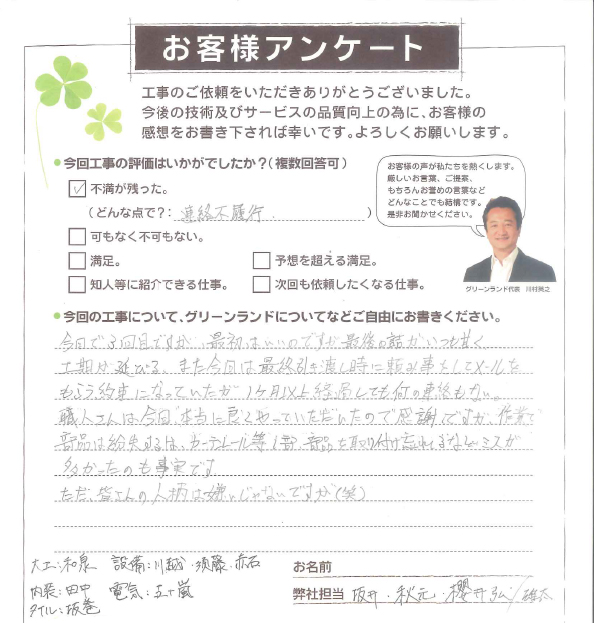 お客様アンケート
工事のご依頼をいただきありがとうございました。
今後の技術及びサービスの品質向上の為に、お客様の
感想をお書き下されば幸いです。よろしくお願いします。
今回工事の評価はいかがでしたか?(複数回答可)
不満が残った。
(どんな点で?: 連絡不履行 )
可もなく不可もない。
満足。
予想を超える満足。
知人等に紹介できる仕事。
次回も依頼したくなる仕事。
お客様の声が私たちを熱くします。
厳しいお言葉、ご提案、
もちろんお誉めの言葉など
どんなことでも結構です。
是非お聞かせください。
グリーンランド代表 川村典之
今回の工事について、グリーンランドについてなどご自由にお書きください。
今回で3回目ですが、最初はいいのですが最後の詰がいつも甘く
工期は延びる、また今回は最終引き渡し時に頼み事としてメールを
もらう約束になっていたが1ヶ月以上経過しても何の連絡もない。
職人さんは今回、本当に良くやっていただいたので感謝ですが、作業で
部品は紛失するは、カーテンレール等1部、部品を取り付け忘れるなどミスが
多かったのも事実です
ただ、皆さんの人柄は嫌いじゃないですが(笑)
大工:和泉 設備:川越・須藤・赤石
内装:田中 電気:五十嵐
タイル:坂巻
お名前
弊社担当 坂井・秋元・櫻井弘/雄太